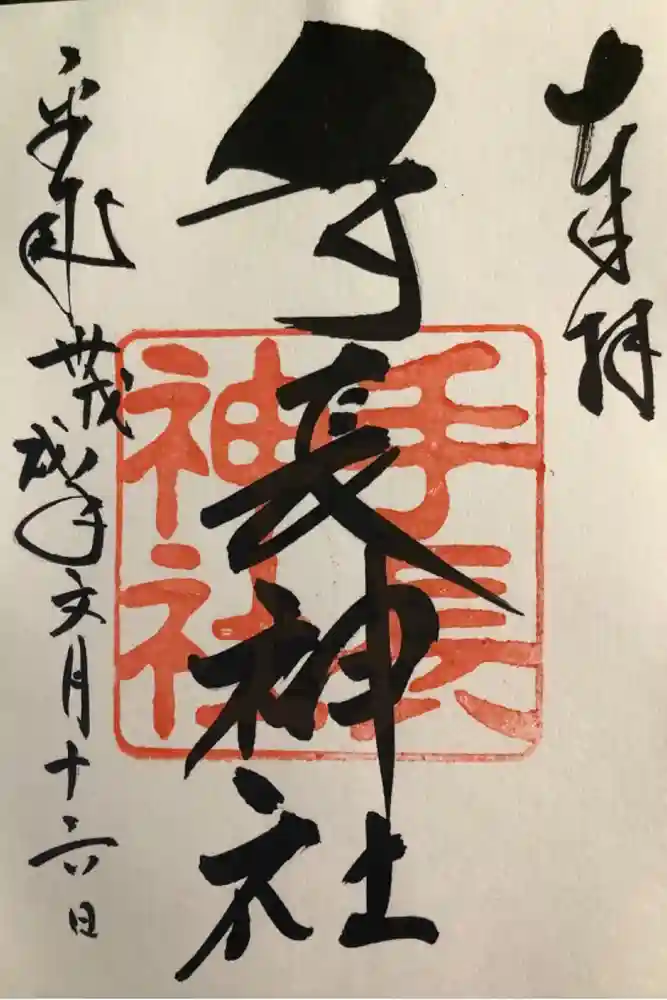 奉拝
手長神社
手長
神社
平成丗戊戌年文月十六日